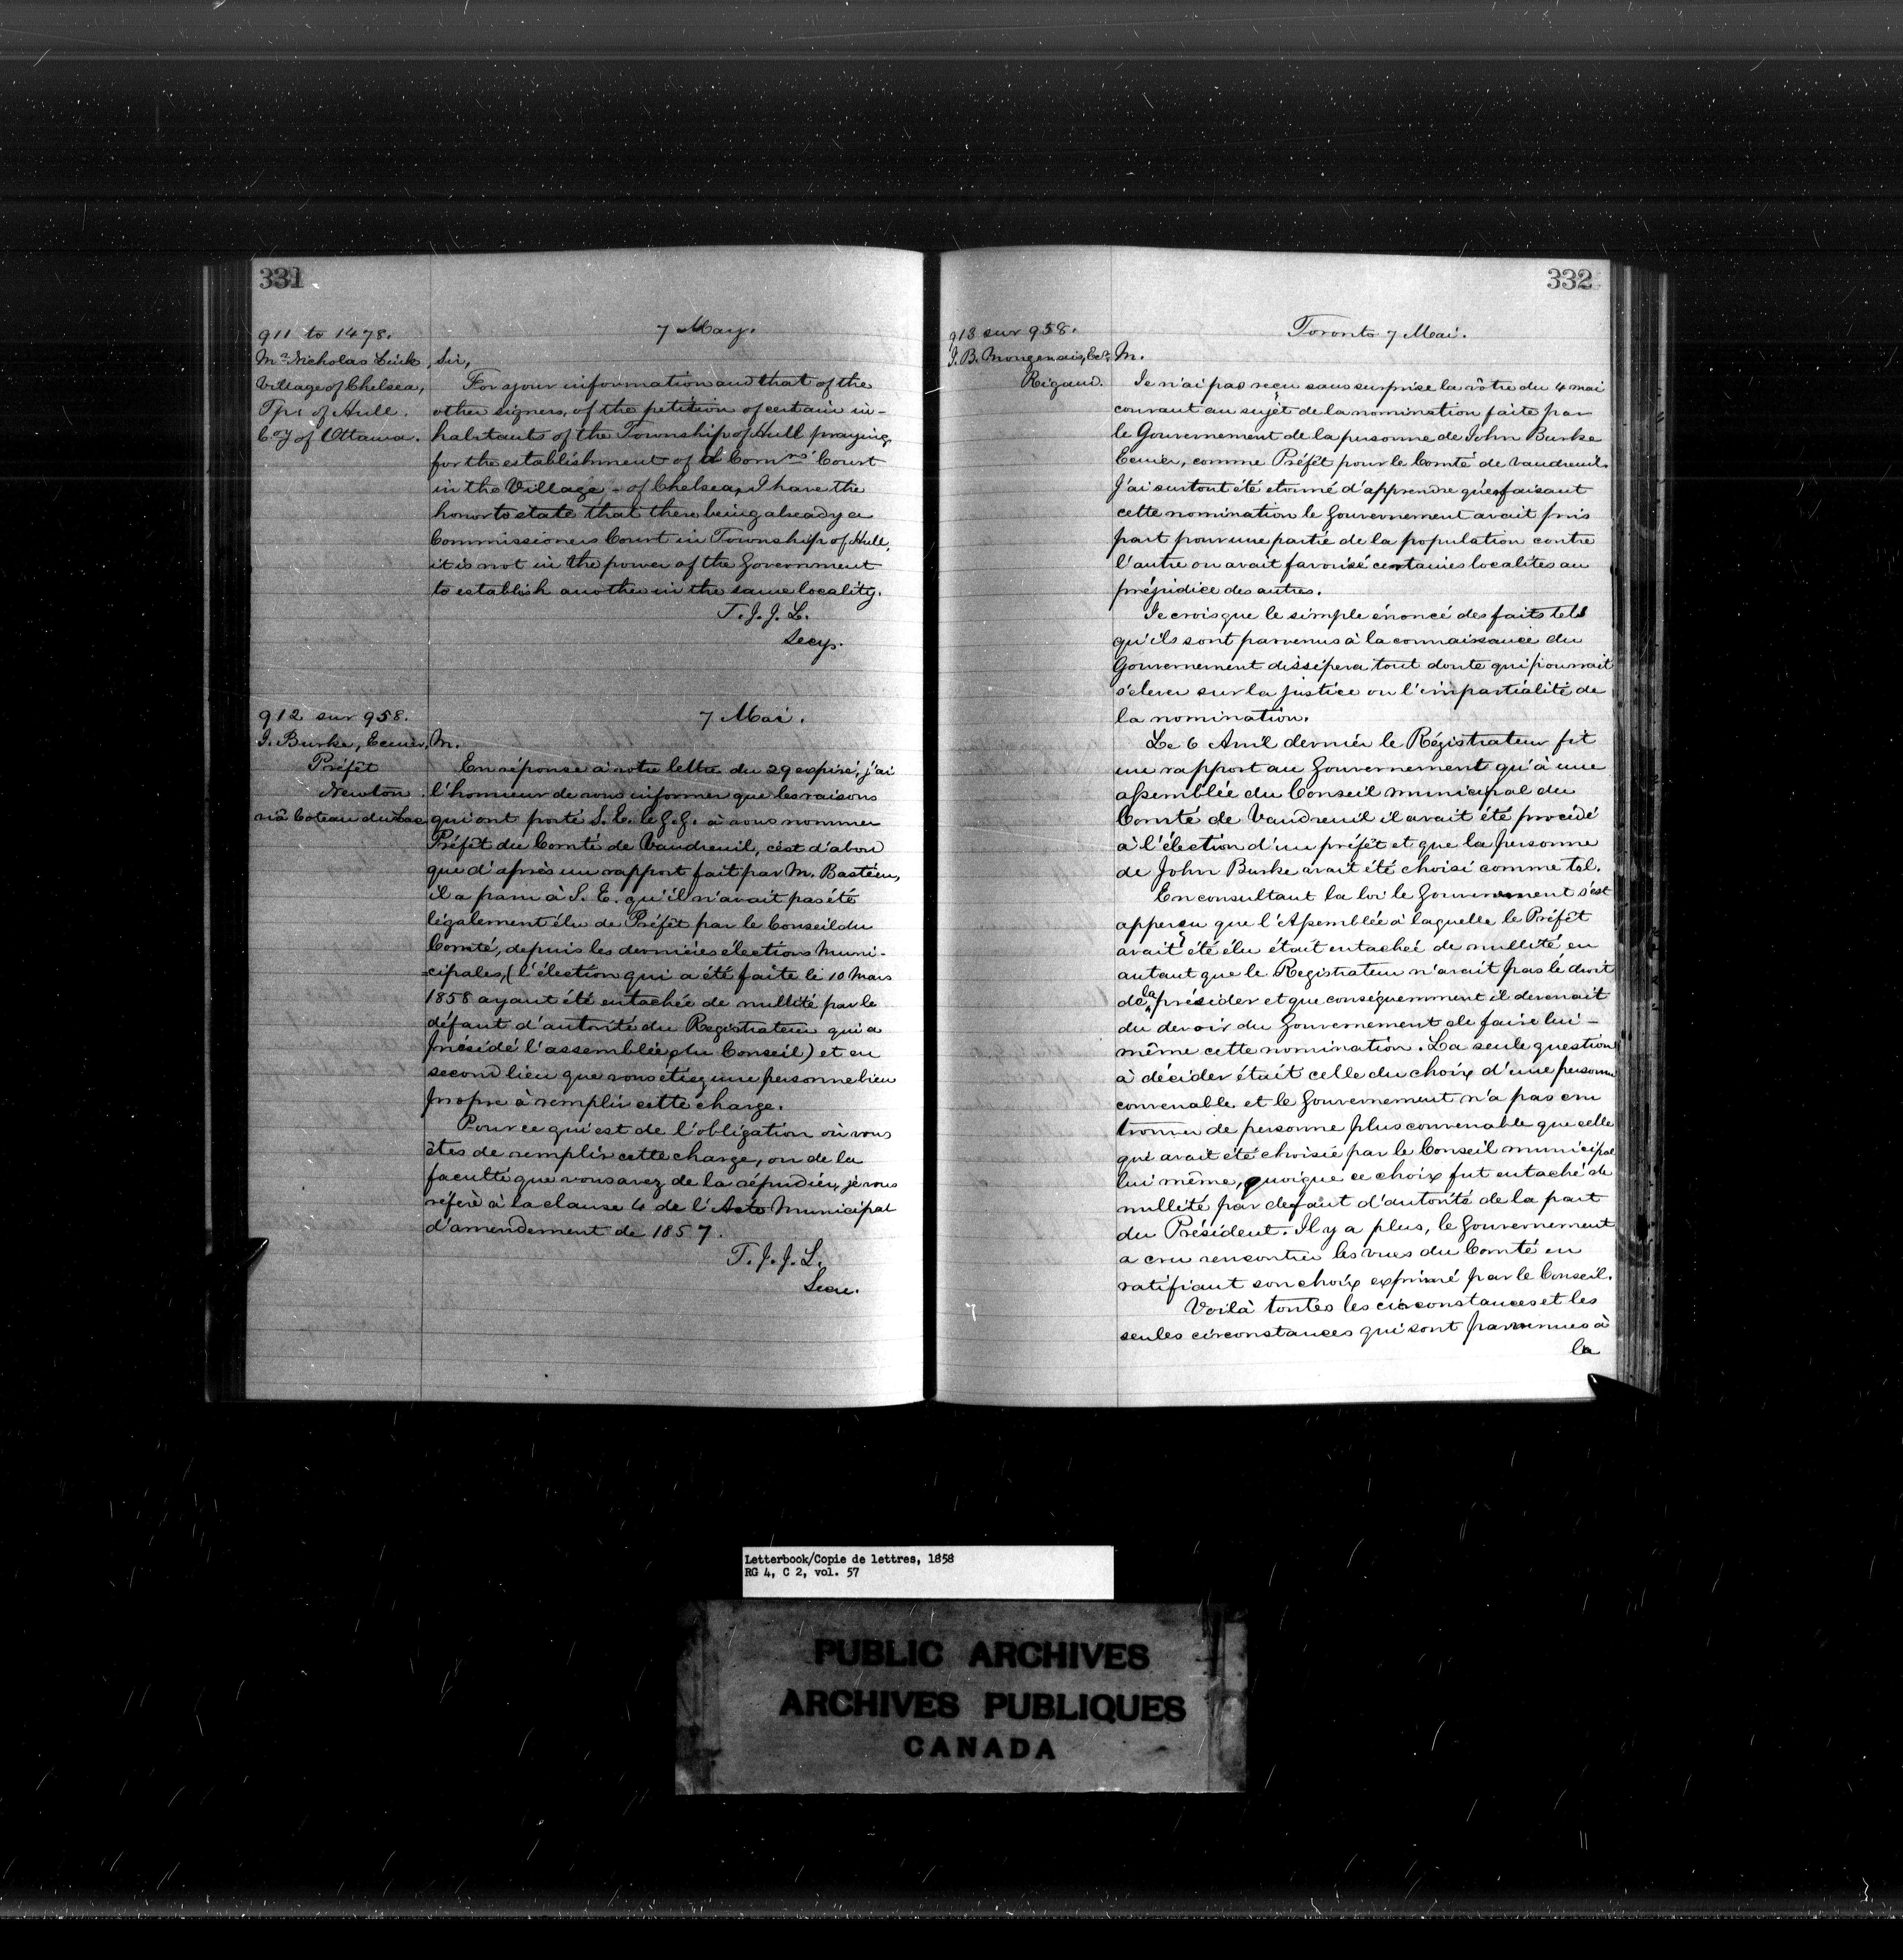 331
911 to 1478.
Mr. Nicholas
Village of Chelsea,
Tp. of Hull.
Coy of Ottawa.
7 May.
Sir,
For your information and that of the
other signers, of the petition of certain in-
habitants of the Township of Hull praying
for the establishment of a Comrs' Court
in the Village - of Chelsea, I have the
honor to state that there being already a
Commissioners Court in Township of Hull,
it is not in the power of the Government
to establish another in the same locality.
T. J. J. L.
Secy.
912 sur 958.
J. Burke, Ecuier,
Préfêt
Newton.
viâ Coteau du Lac
7 Mai.
M.
En réponse à votre lettre du 29 expiré, j'ai
l'honneur de vous informer que les raisons
qui ont porté S. E. le G. G. à vous nommer
Préfêt du Comté de Vaudreuil, c'est d'abord
que d'après un rapport fait par M. Bastien,
il a paru à S. E. qu'il n'avait pas été
légalement élu de Préfêt par le Conseil du
Comté, depuis les dernières élections Muni-
=cipales, (l'élection qui a été faite le 10 Mars
1858 ayant été entachée de nullité par le
défaut d'autorité du Registrateur qui a
présidé l'assemblée du Conseil) et en
second lieu que vous étiez une personne bien
propre à remplir cette charge.
Pour ce qui est de l'obligation où vous
êtes de remplir cette charge, ou de la
faculté que vous avez de la répudier, je vous
réfère à la clause 4 de l'Acte Municipal
d'amendement de 1857.
T. J. J. L.
Secre.
332
913 sur 958.
J. B. Mongenais, Ecr,
Rigaud.
Toronto 7 Mai.
M.
Je n'ai pas reçu sans surprise la vôtre du 4 mai
courant au sujèt de la nomination faite par
le Gouvernement de la personne de John Burke
Ecuier, comme Préfêt pour le Comté de Vaudreuil.
J'ai surtout été etonné d'apprendre qu'en faisant
cette nomination le Gouvernement avait pris
part pour une partie de la population contre
l'autre ou avait favorisé certaines localités au
préjudice des autres.
Je crois que le simple énoncé des faits tels
qu'ils sont parvenus à la connaissance du
Gouvernement dissipera tout doute qui pourrait
s'élever sur la justice ou l'impartialité de
la nomination.
Le 6 Avril dernier le Régistrateur fit
un rapport au Gouvernement qu'à une
assemblée du Conseil municipal du
Comté de Vaudreuil il avait été procédé
à l'élection d'un préfêt et que la personne
de John Burke avait été choisi comme tel.
En consultant la loi le Gouvernement s'est
apperçu que l'Assemblée à laquelle le Préfêt
avait été élu était entachée de nullité en
autant que le Registrateur n'avait pas le droit
de la présider et que conséquemment il devenait
du devoir du Gouvernement de faire lui-
même cette nomination. La seule question
à décider était celle du choix d'une personne
convenable et le Gouvernement n'a pas cru
trouver de personne plus convenable que celle
qui avait été choisie par le Conseil municipal
lui même, quoique ce choix fut entaché de
nullité par defaut d'autorité de la part
du Président. Il y a plus, le Gouvernement
a cru rencontrer les vues du Comté en
ratifiant son choix exprimé par le Conseil.
Voilà toutes les circonstances et les
seules circonstances qui sont parvenues à
la
Letterbook/Copie de lettres, 1858
RG 4, C 2, vol. 57
PUBLIC ARCHIVES
ARCHIVES PUBLIQUES
CANADA